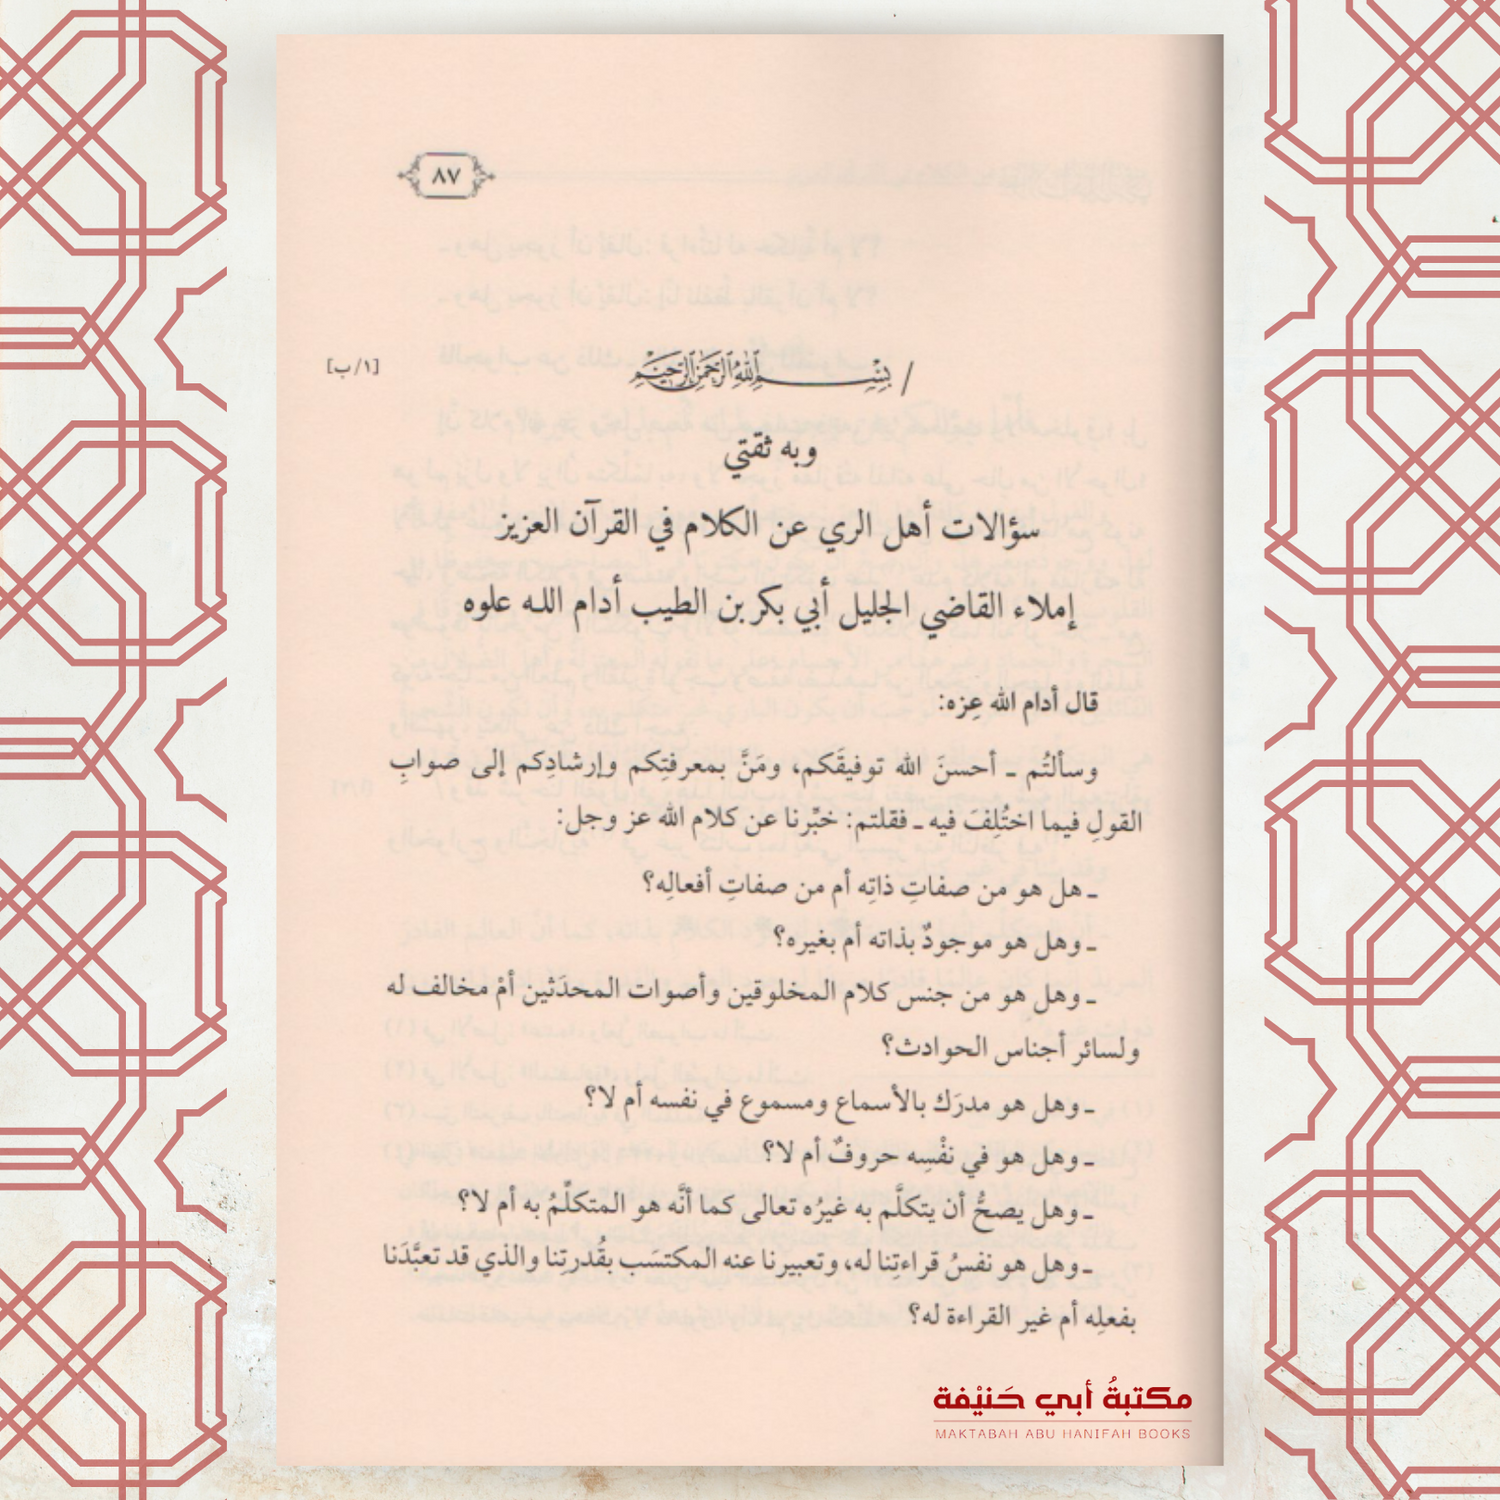 ٨٧
/ بسم الله الرحمن الرحيم
[١/ب]
وبه ثقتي
سؤالات أهل الري عن الكلام في القرآن العزيز
إملاء القاضي الجليل أبي بكر بن الطيب أدام الله علوه
قال أدام الله عِزه:
وسألتُم ـ أحسنَ الله توفيقَكم، ومَنَّ بمعرفتِكم وإرشادِكم إلى صوابِ
القولِ فيما اختُلِفَ فيه ـ فقلتم: خبِّرنا عن كلام الله عز وجل:
ـ هل هو من صفاتِ ذاتِه أم من صفاتِ أفعالِه؟
ـ وهل هو موجودٌ بذاته أم بغيره؟
ـ وهل هو من جنس كلام المخلوقين وأصوات المحدَثين أمْ مخالف له
ولسائر أجناس الحوادث؟
ـ وهل هو مدرَك بالأسماع ومسموع في نفسه أم لا؟
ـ وهل هو في نفْسِه حروفٌ أم لا؟
ـ وهل يصحُّ أن يتكلَّم به غيرُه تعالى كما أنَّه هو المتكلِّمُ به أم لا؟
ـ وهل هو نفسُ قراءتِنا له، وتعبيرنا عنه المكتسَب بقُدرتِنا والذي قد تعبَّدَنا
بفعلِه أم غير القراءة له؟
مكتبةُ أبي حَنيْفة
MAKTABAH ABU HANIFAH BOOKS